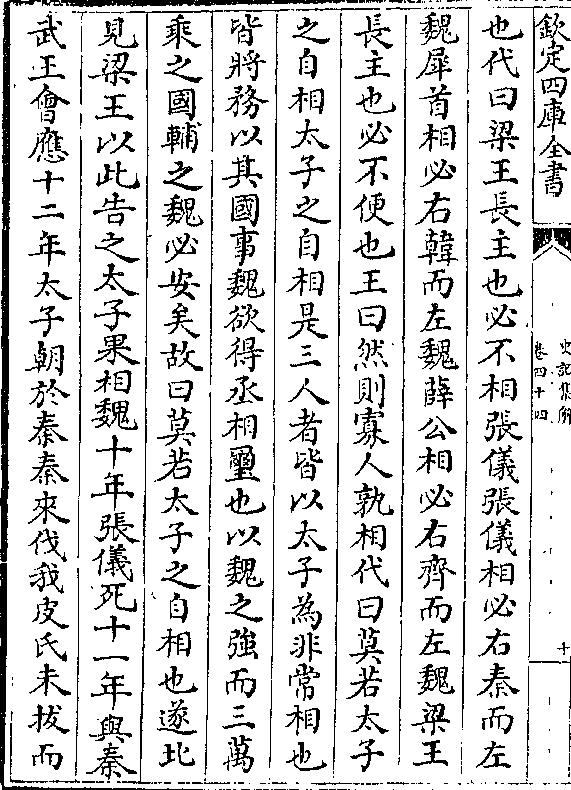 欽定四庫全書
史記集解
卷四十四
十
也代曰梁王長主也必不相張儀張儀相必右秦而左
魏犀首相必右韓而左魏薛公相必右齊而左魏梁王
長主也必不便也王曰然則寡人孰相代曰莫若太子
之自相太子之自相是三人者皆以太子為非常相也
皆將務以其國事魏欲得丞相璽也以魏之強而三萬
乘之國輔之魏必安矣故曰莫若太子之自相也遂北
見梁王以此告之太子果相魏十年張儀死十一年與秦
武王會應十二年太子朝於秦秦來伐我皮氏未拔而